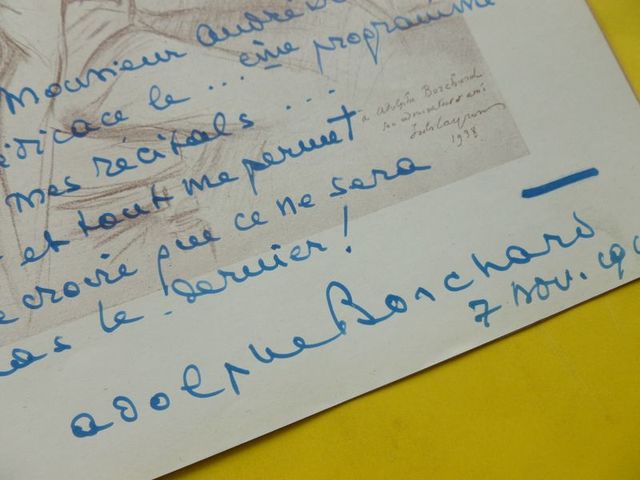 Monsieur André
dédicace le ... ème programme
mes récitals ...
et tout me permet
croire que ce ne sera
pas le dernier!
Adolphe Borchard
7 nov. 19
à Adolphe Borchard
son admirateur et ami
1938